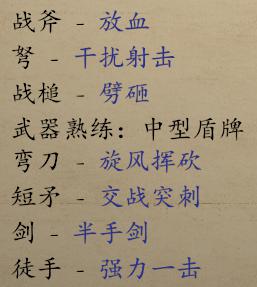 战斧 - 放血
弩 - 干扰射击
战槌 - 劈砸
武器熟练：中型盾牌
弯刀 - 旋风挥砍
短矛 - 交战突刺
剑 - 半手剑
徒手 - 强力一击